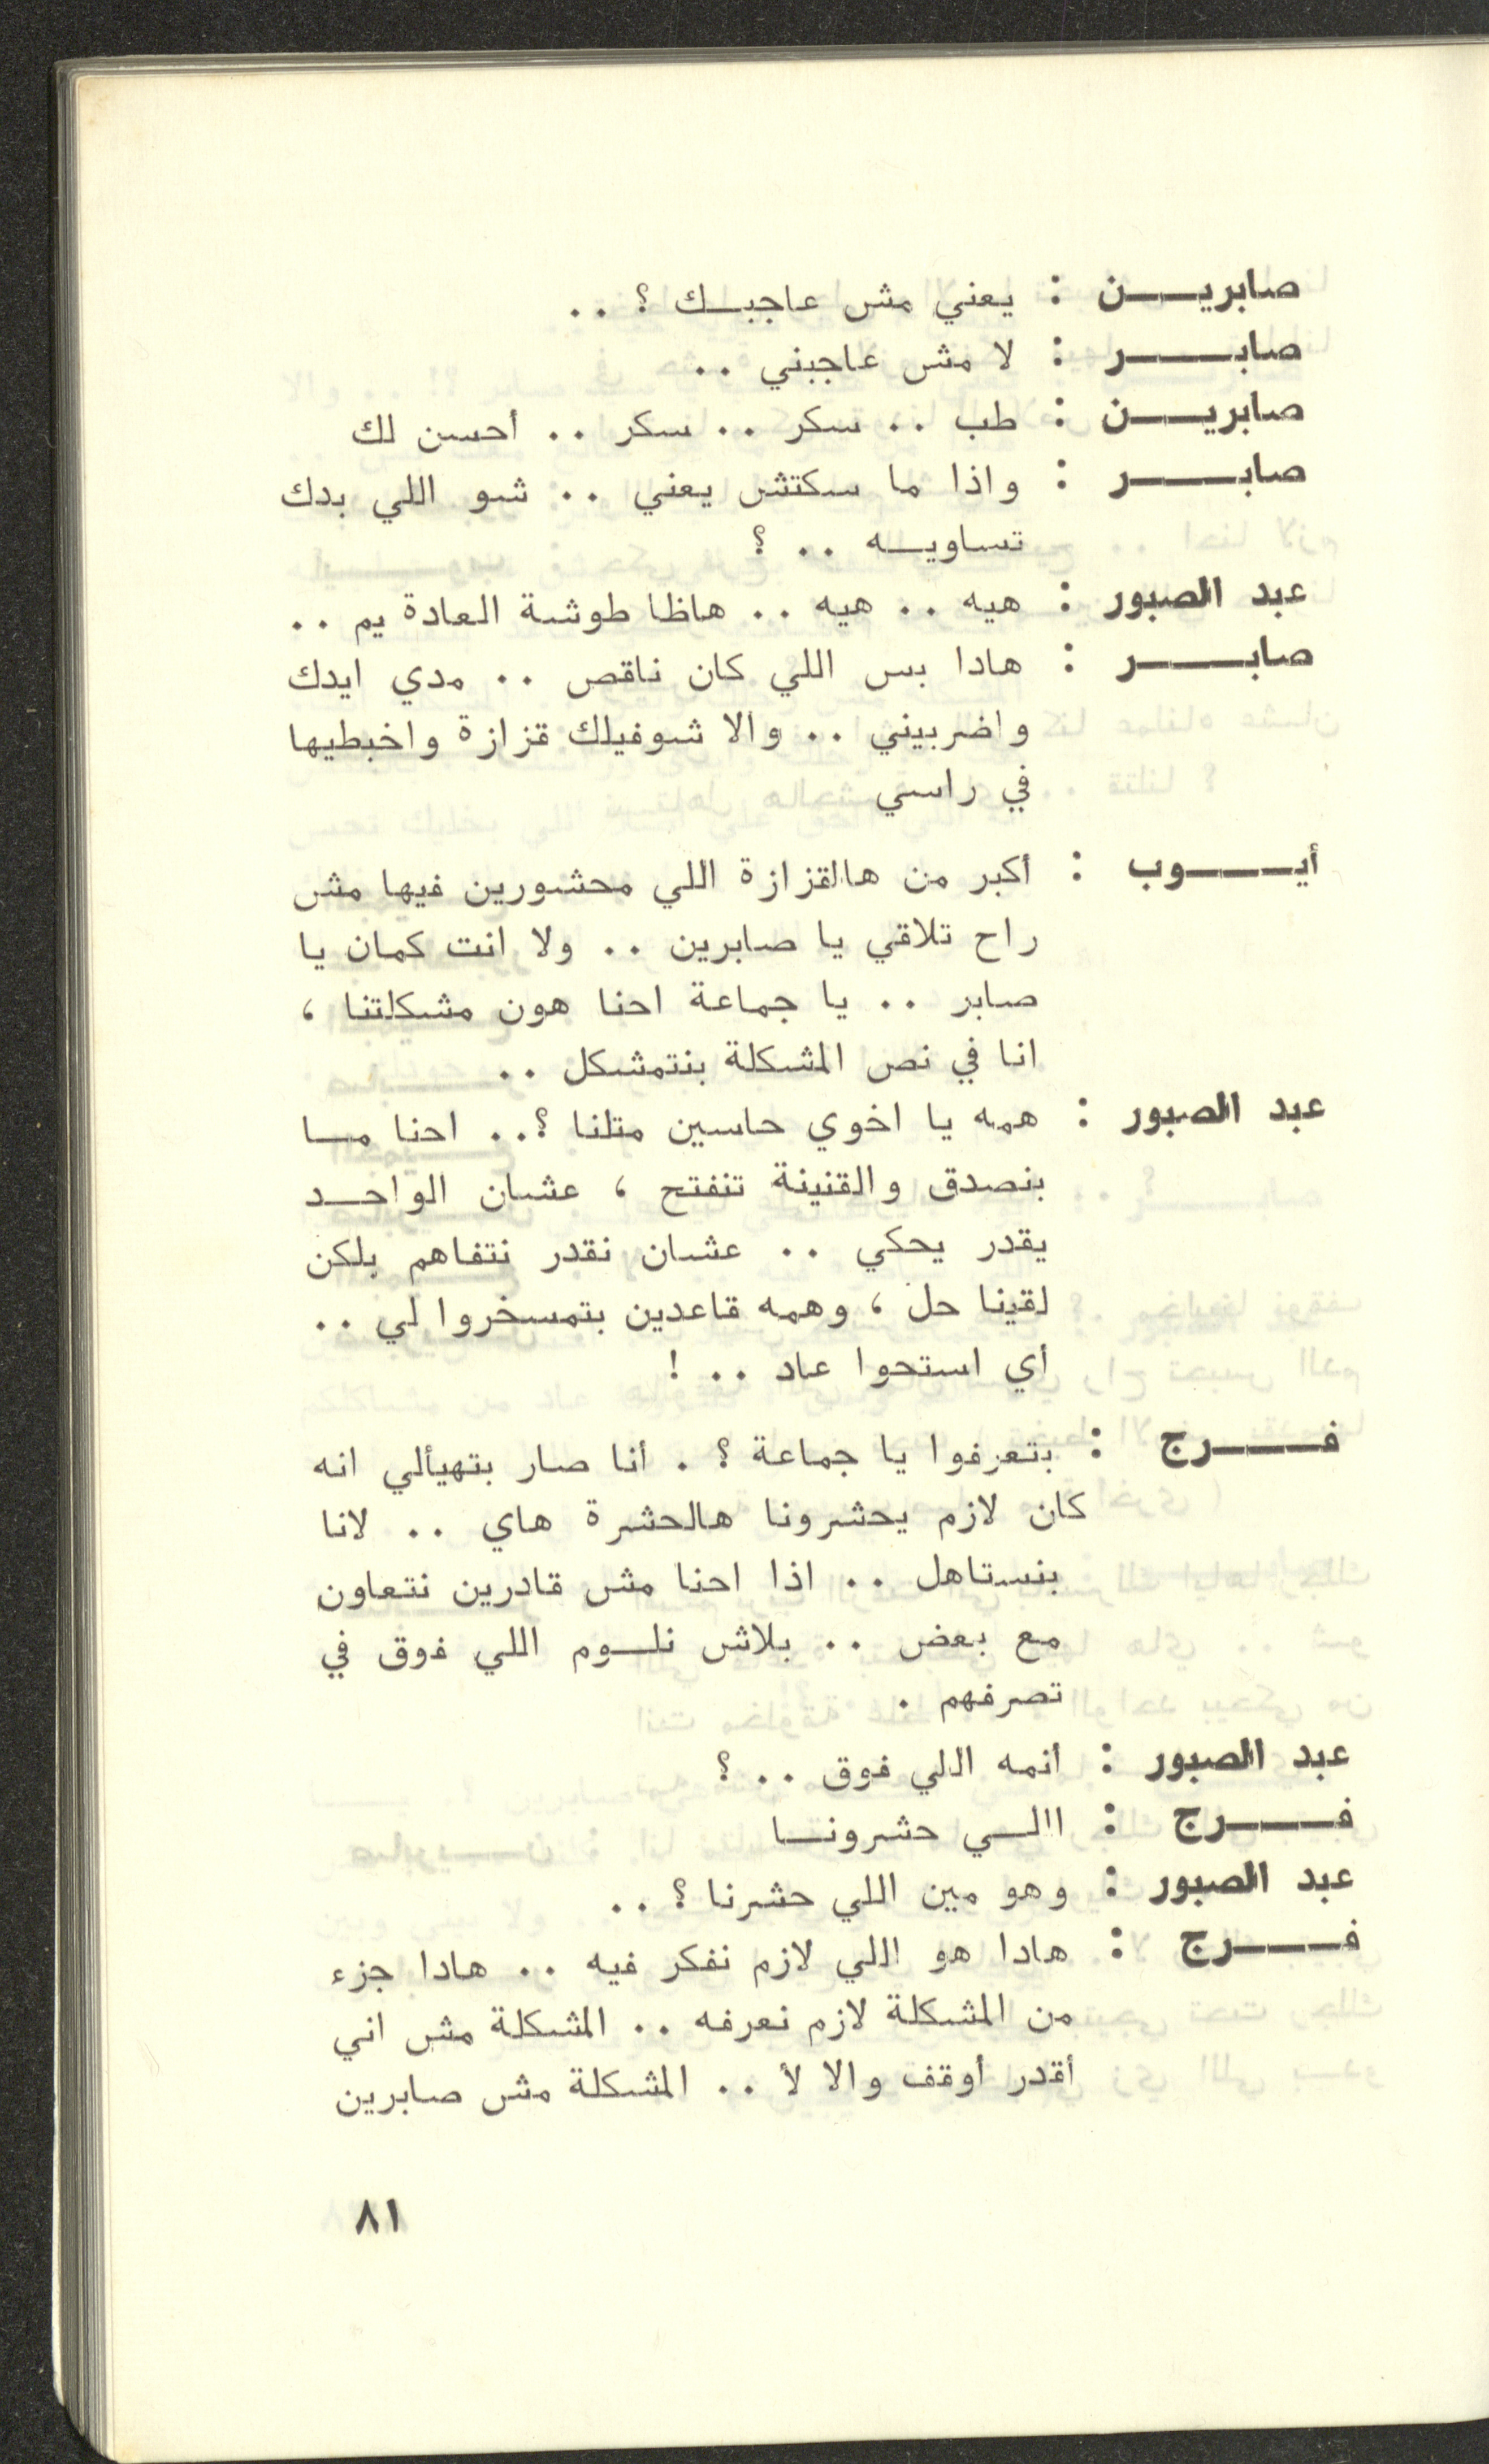 صابريـــن : يعني مش عاجبــك ؟ ..
صابــــر : لا مش عاجبني ..
صابريـــن : طب .. سكر .. سكر .. أحسن لك
صابــــر : واذا ما سكتش يعني .. شو اللي بدك
تساويــه .. ؟
عبد الصبور : هيه .. هيه .. هاظا طوشة العادة يم ..
صابــــر : هادا بس اللي كان ناقص .. مدي ايدك
واضربيني .. والا شوفيلك قزازة واخبطيها
في راسي
أيــــوب : أكبر من هالقزازة اللي محشورين فيها مش
راح تلاقي يا صابرين .. ولا انت كمان يا
صابر .. يا جماعة احنا هون مشكلتنا ،
انا في نص المشكلة بنتمشكل ..
عبد الصبور : همه يا اخوي حاسين متلنا ؟.. احنا مــا
بنصدق والقنينة تنفتح ، عشان الواحــد
يقدر يحكي .. عشان نقدر نتفاهم بلكن
لقينا حل ، وهمه قاعدين بتمسخروا لي ..
أي استحوا عاد .. !
فــــرج : بتعرفوا يا جماعة ؟ . أنا صار بتهيألي انه
كان لازم يحشرونا هالحشرة هاي .. لانا
بنستاهل .. اذا احنا مش قادرين نتعاون
مع بعض .. بلاش نلــوم اللي فوق في
تصرفهم .
عبد الصبور : أنمه اللي فوق .. ؟
فــــرج : االــي حشرونــا
عبد الصبور : وهو مين اللي حشرنا ؟ ..
فــــرج : هادا هو اللي لازم نفكر فيه .. هادا جزء
من المشكلة لازم نعرفه .. المشكلة مش اني
أقدر أوقف والا لأ .. المشكلة مش صابرين
٨١